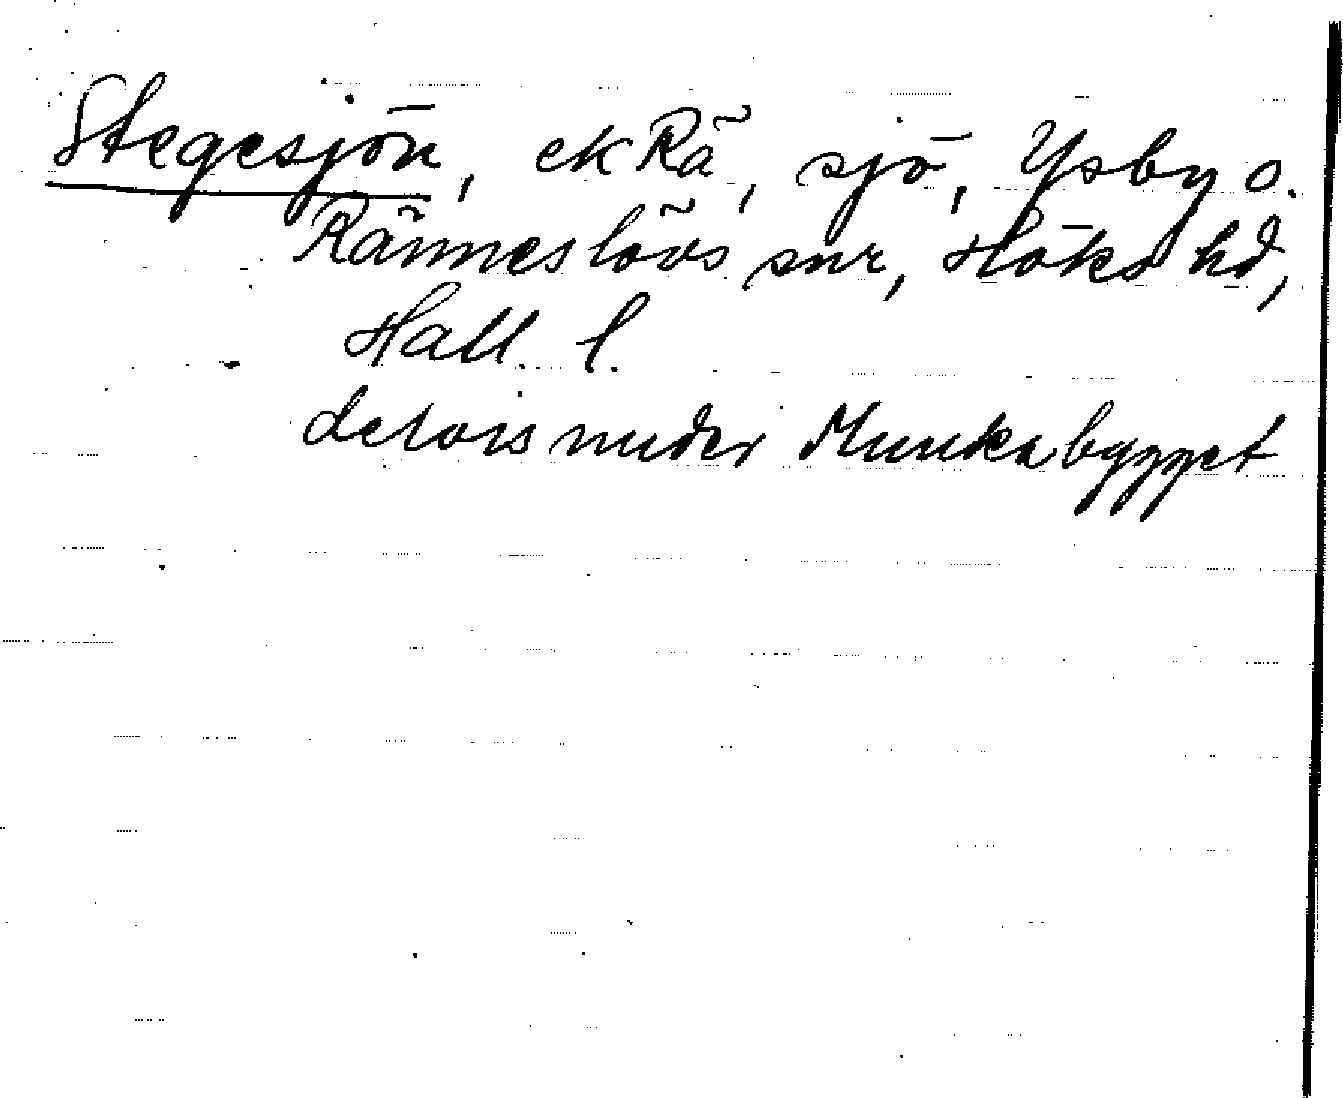 Stegesjön, ekRä, sjö, Ysby o.
Ränneslövs snr, Höks hd,
Hall. l.
delvis under Munkabygget